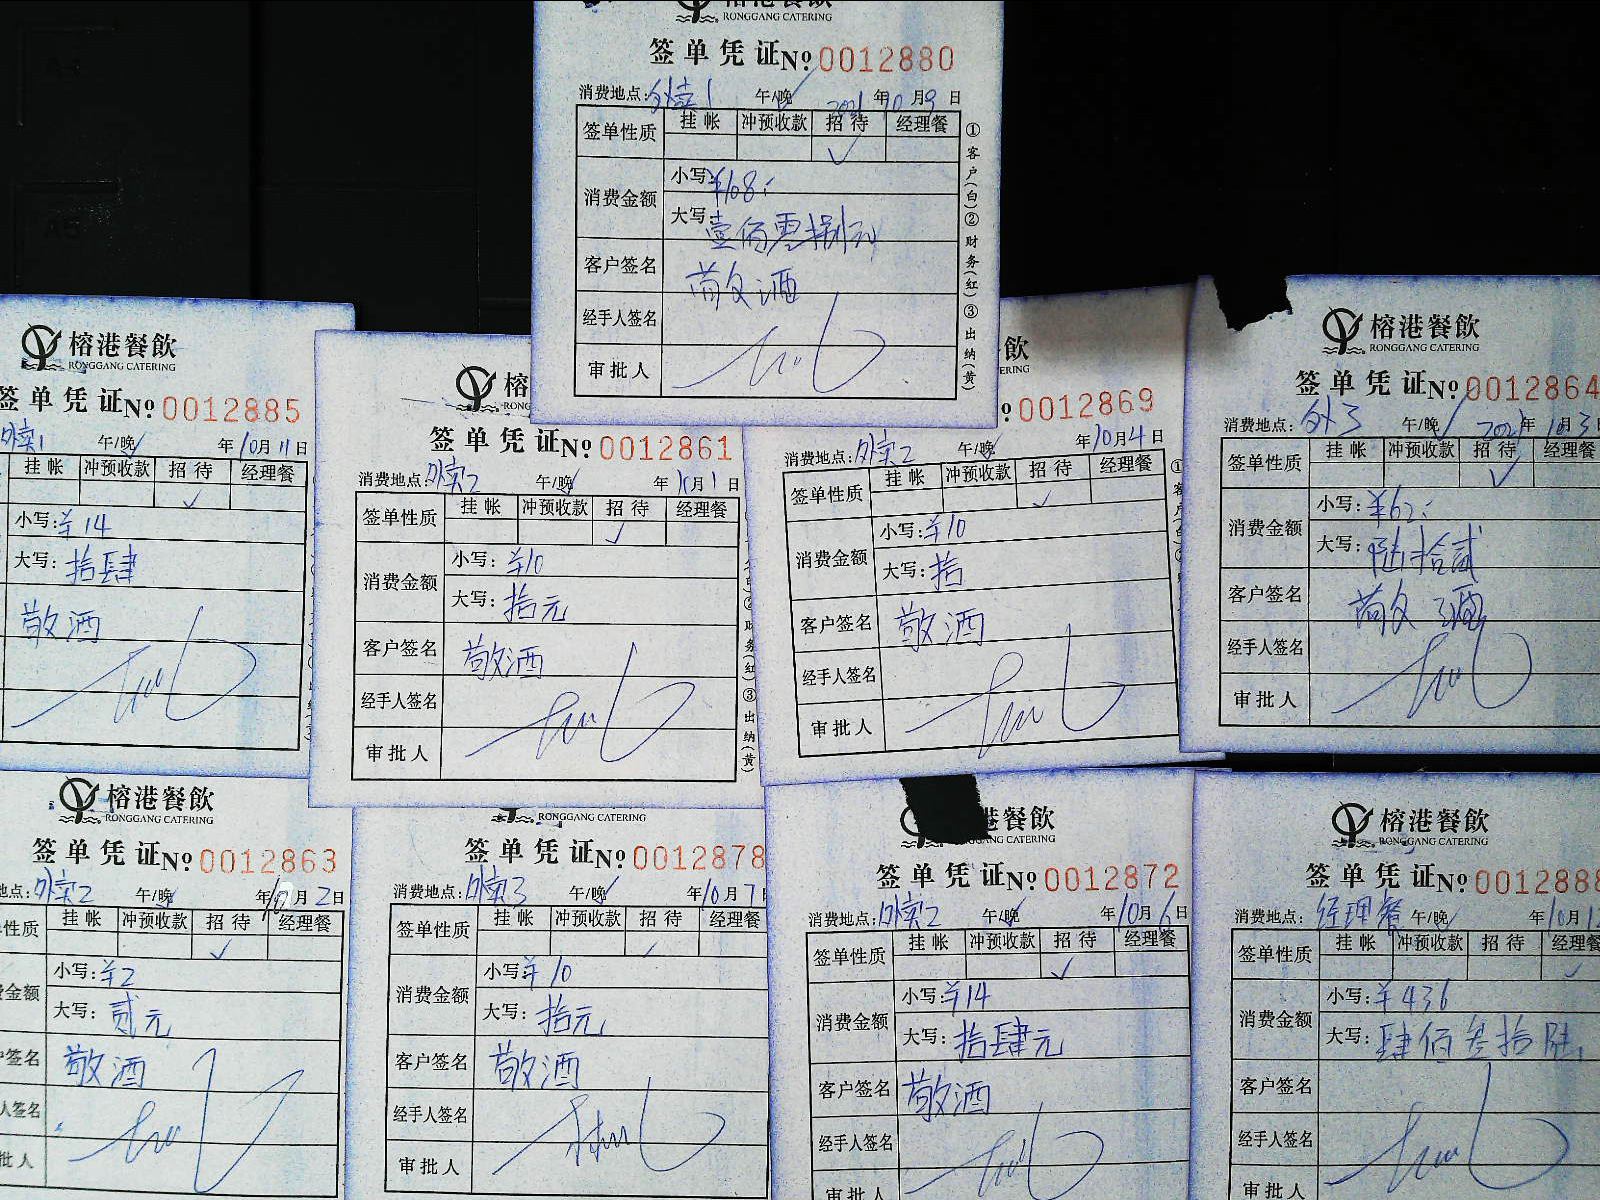 榕港餐飲
RONGGANG CATERING
签单凭证No 0012880
消费地点:外卖1 午/晚 2021年10月9日
签单性质 挂帐 冲预收款 招待 经理餐
消费金额 小写:¥108.-
大写:壹佰零捌元
客户签名 敬酒
经手人签名
审批人
①客户(白)②财务(红)③出纳(黄)
榕港餐飲
RONGGANG CATERING
签单凭证No 0012885
外卖1 午/晚 年10月11日
挂帐 冲预收款 招待 经理餐
小写:¥14
大写:拾肆
敬酒
榕
RONG
签单凭证No 0012861
消费地点:外卖2 午/晚 年10月1日
签单性质 挂帐 冲预收款 招待 经理餐
消费金额 小写:¥10
大写:拾元
客户签名 敬酒
经手人签名
审批人
③出纳(黄)
飲
ERING
0012869
消费地点:外卖2 午/晚 年10月4日
签单性质 挂帐 冲预收款 招待 经理餐
消费金额 小写:¥10
大写:拾
客户签名 敬酒
经手人签名
审批人
榕港餐飲
RONGGANG CATERING
签单凭证No 0012864
消费地点:外3 午/晚 2021年10月3日
签单性质 挂帐 冲预收款 招待 经理餐
消费金额 小写:¥62.-
大写:陆拾贰
客户签名 敬酒
经手人签名
审批人
榕港餐飲
RONGGANG CATERING
签单凭证No 0012863
地点:外卖2 午/晚 年10月2日
单性质 挂帐 冲预收款 招待 经理餐
费金额 小写:¥2
大写:贰元
户签名 敬酒
人签名
批人
RONGGANG CATERING
签单凭证No 0012878
消费地点:外卖3 午/晚 年10月7日
签单性质 挂帐 冲预收款 招待 经理餐
消费金额 小写:¥10
大写:拾元
客户签名 敬酒
经手人签名
审批人
港餐飲
GANG CATERING
签单凭证No 0012872
消费地点:外卖2 午/晚 年10月6日
签单性质 挂帐 冲预收款 招待 经理餐
消费金额 小写:¥14
大写:拾肆元
客户签名 敬酒
经手人签名
审批人
榕港餐飲
RONGGANG CATERING
签单凭证No 0012888
消费地点:经理餐 午/晚 年10月1
签单性质 挂帐 冲预收款 招待 经理餐
消费金额 小写:¥436
大写:肆佰叁拾陆
客户签名
经手人签名
审批人